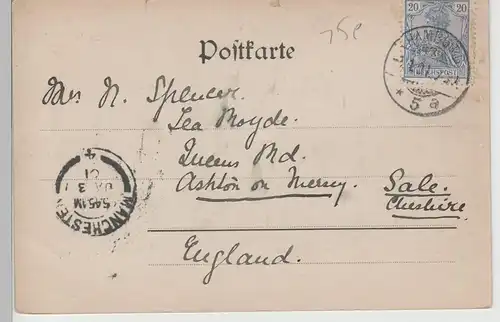 75p
20 20
REICHSPOST
HAMBURG
* 5 a
Postkarte
Mrs N. Spencer.
Lea Royde.
Queens Rd.
Ashton on Mersey. Sale.
Cheshire
England.
MANCHESTER
5 45 PM
JA 3
01
4